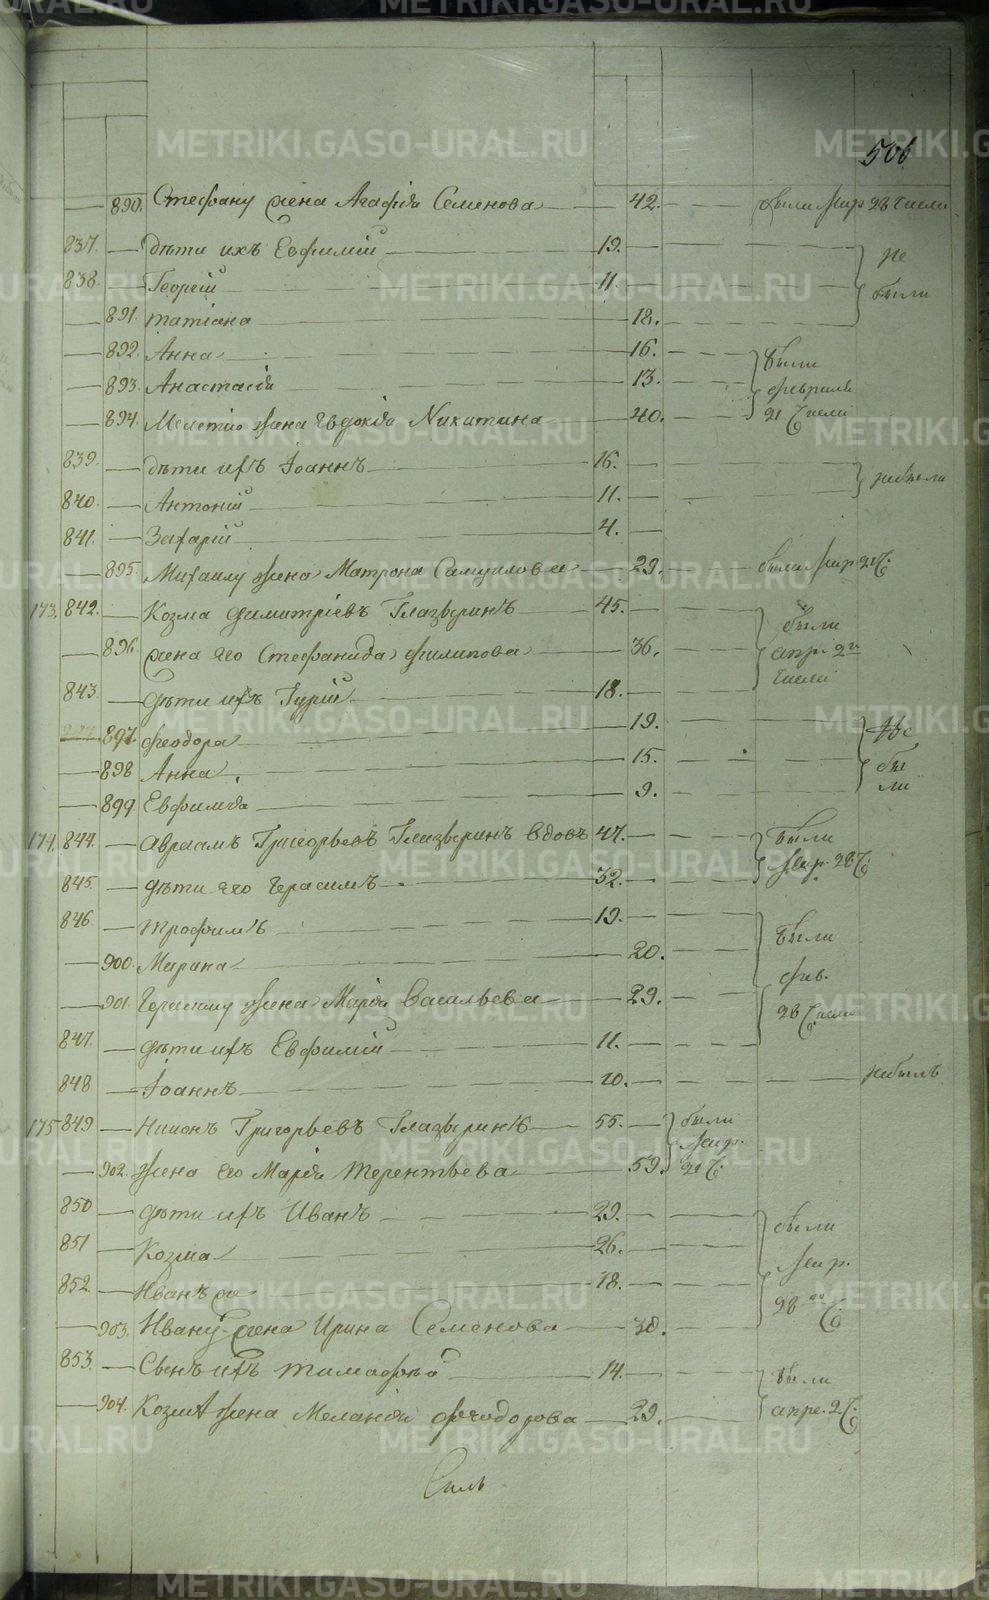 506
890. Стефану жена Агафія Семенова 42. были Мар. 28 числа
837. дѣти ихъ Евфимій 19. не
838. Георгій 11. были
891. татіана 18.
892. Анна 16. были
893. Анастасія 13. февраля
894. Мелетію жена Евдокія Никитина 40. 21 числа
839. дѣти ихъ Іоаннъ 16. небыли
840. Антоній 11.
841. Захарій 4.
895. Михаилу жена Матрона Самуилова 29. была Мар. 21 Ч.
173. 842. Козма Димитріевъ Глазыринъ 45. были
896. жена его Стефанида Филипова 36. апр. 2го
843. дѣти ихъ Гурій 18. числа
897. Феодора 19.
898 Анна 15. бы
899 Евфимія 9. ли
174. 844. Авраамъ Григорьевъ Глазыринъ вдовъ 47. были
845. дѣти его Герасимъ 32. Мар. 28 Ч.
846. Трофимъ 19. были
900. Марина 20. фев.
901. Герасиму жена Марія Васильева 29. 28 числа
847. дѣти ихъ Евфимій 11.
848 Іоаннъ 10. небылъ
175 849 Григорьевъ Глазыринъ 55. были
Мар.
902. жена его Марія Терентьева 59. 21 Ч.
850 дѣти ихъ Иванъ 29. были
851 Козма 26. Мар.
852. Иванъ же 18. 28 Ч.
903. Ивану жена Ирина Семенова 30.
853. Сынъ ихъ Тимофѣй 14. были
904. Козмѣ жена Меланія Феодорова 29. апре. 2 Ч.
METRIKI.GASO-URAL.RU